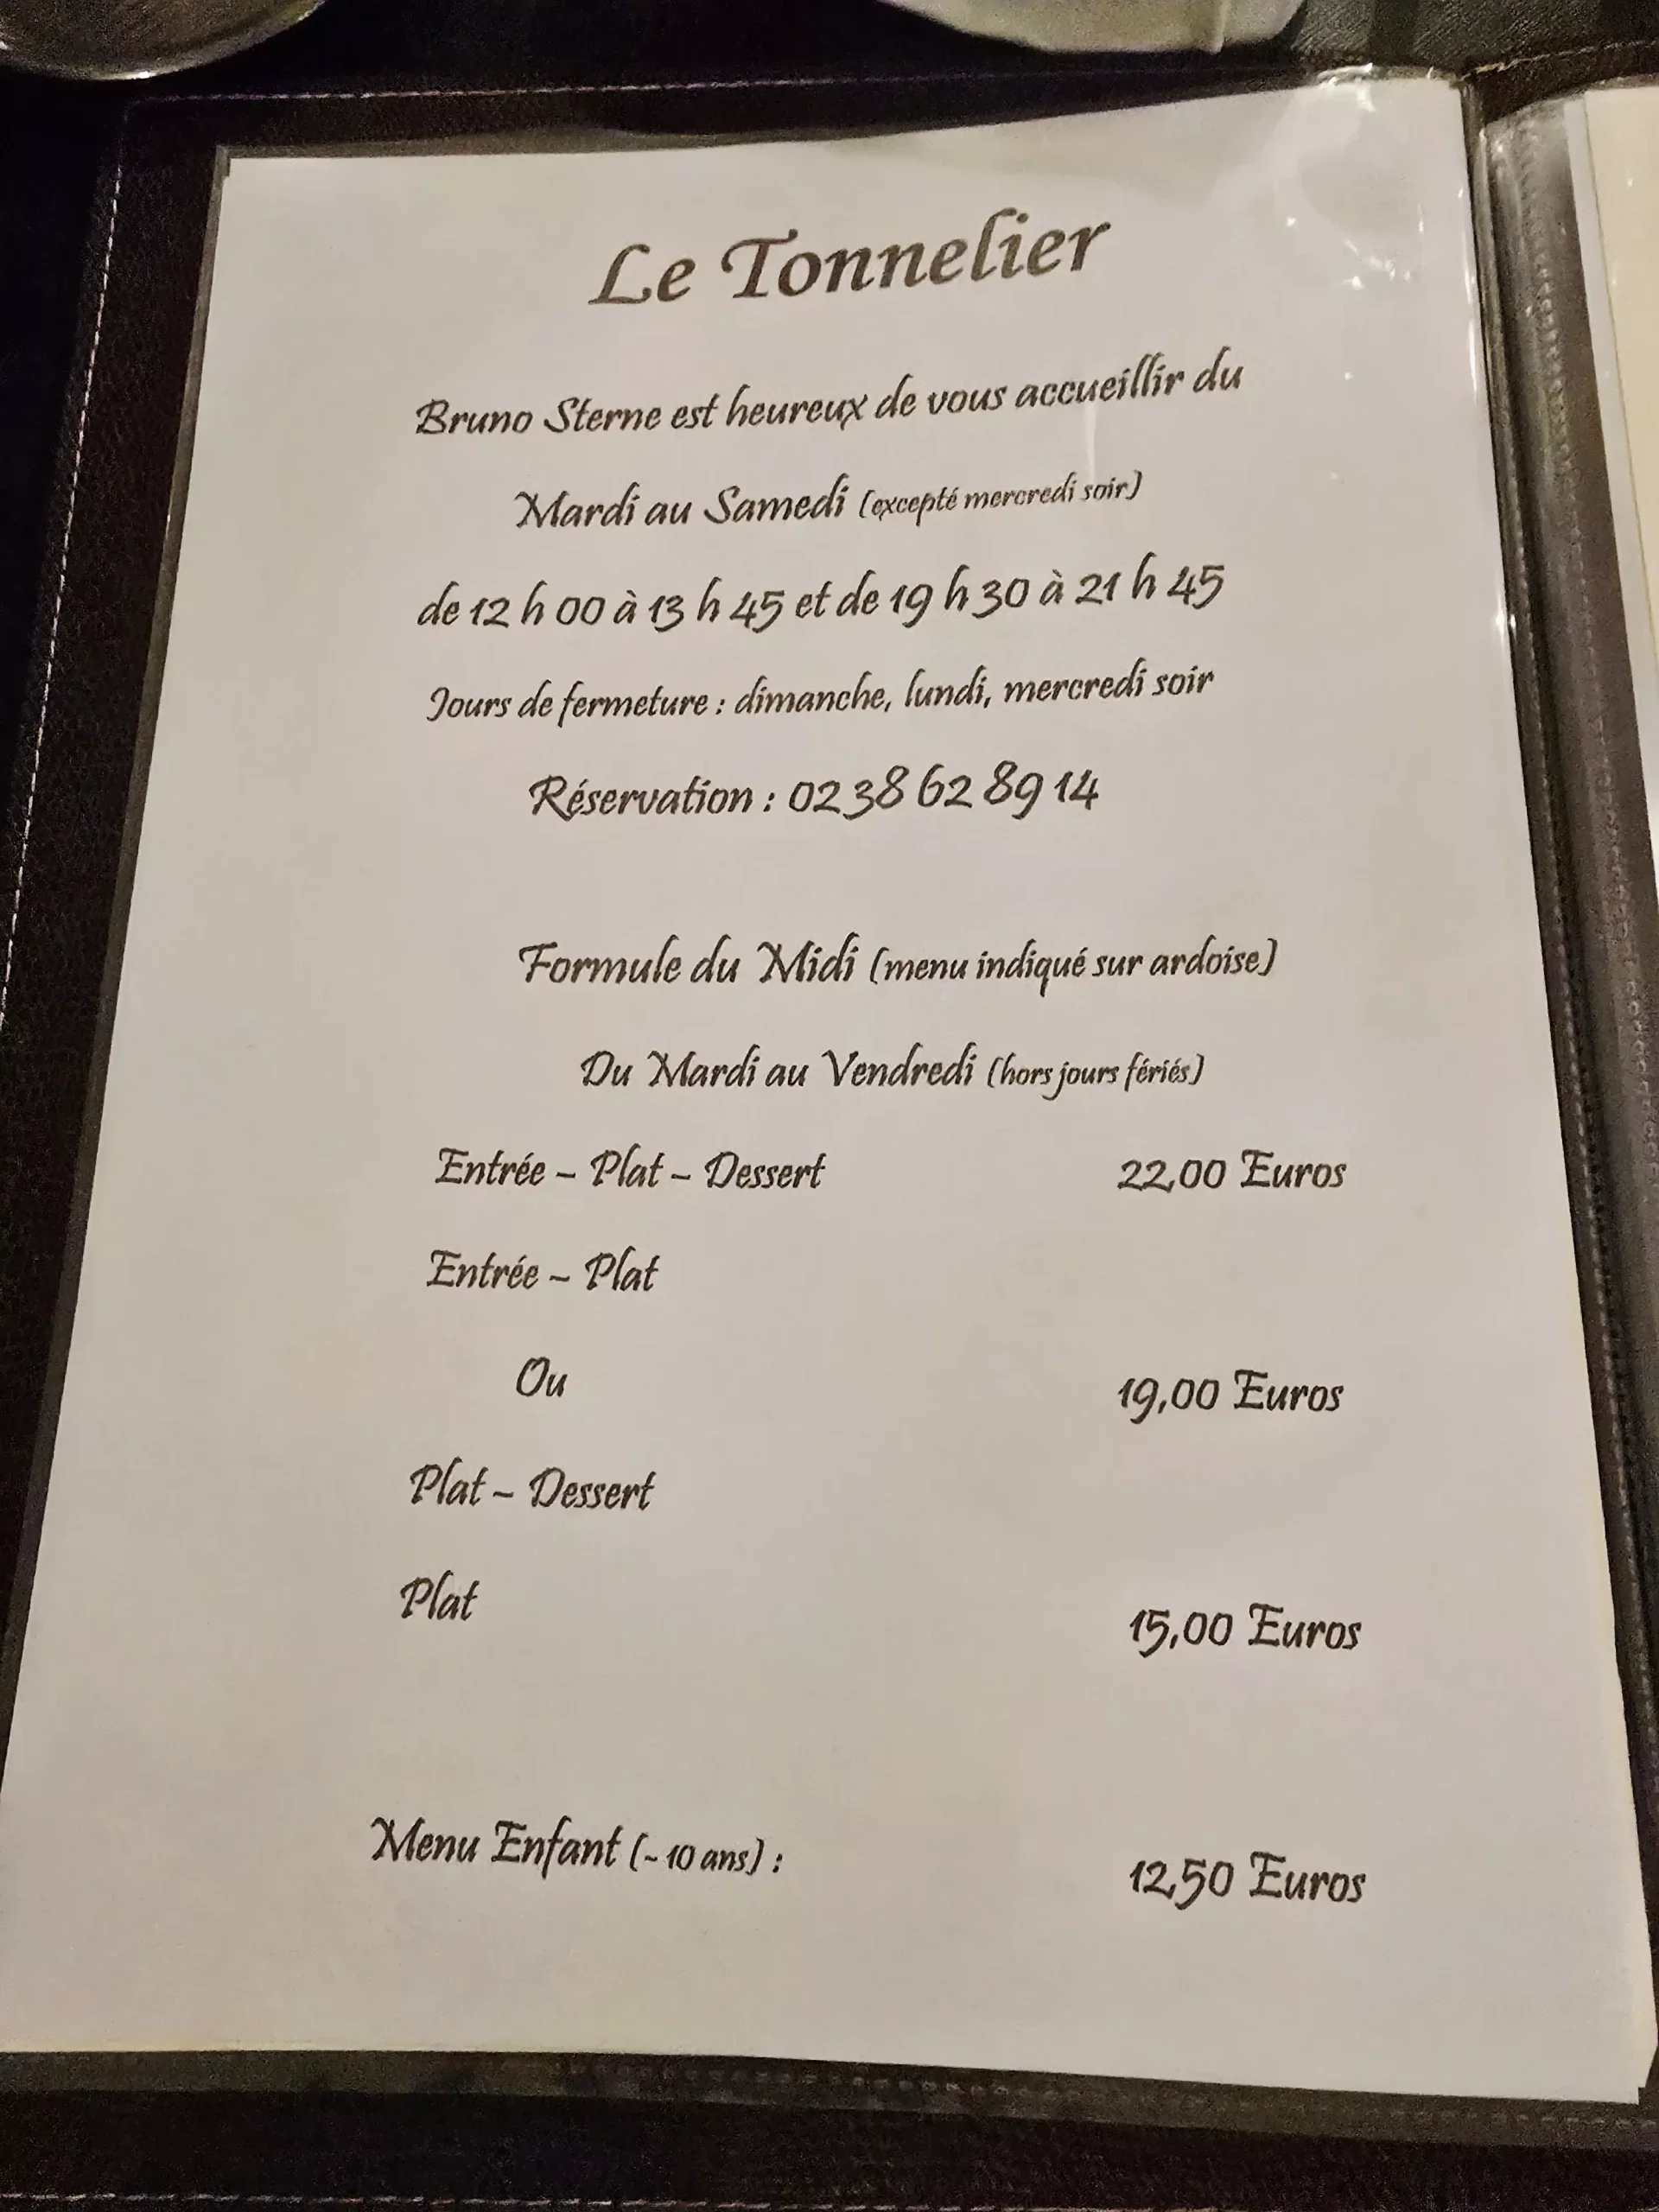 Le Tonnelier
Bruno Sterne est heureux de vous accueillir du
Mardi au Samedi (excepté mercredi soir)
de 12 h 00 à 13 h 45 et de 19 h 30 à 21 h 45
Jours de fermeture : dimanche, lundi, mercredi soir
Réservation : 02 38 62 89 14
Formule du Midi (menu indiqué sur ardoise)
Du Mardi au Vendredi (hors jours fériés)
Entrée – Plat – Dessert 22,00 Euros
Entrée – Plat
Ou 19,00 Euros
Plat – Dessert
Plat 15,00 Euros
Menu Enfant (- 10 ans) : 12,50 Euros